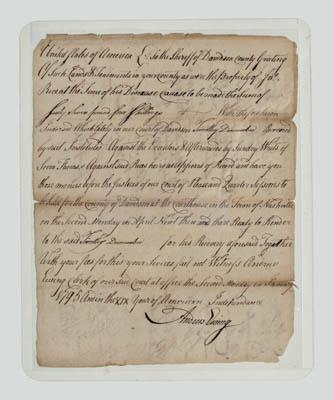 United States of America To the Sheriff of Davidson County Greeting
Of such Lands & Tenements in your County as were the Property of Jas.
Rice at the Time of his Decease Cause to be made the Sum of
forty Seven pound four Shillings With Thereon
Interest Which lately in our Court of Davidson Timothy Demonbre Recovered
by said Against the Executors & Afterwards by Sundry Writs of
Scira Facias Against said Heirs as Appears of Record and have you
those monies before the Justices of our County of Pleas and Quarter Sessions to
be held for the County of Davidson at the Courthouse in the Town of Nashville
on the Second Monday in April Next Then and there Ready to Render
to the said Timothy Demonbre for his Recovery aforesaid Together
With your fees for this your Service, fail not Witness Andrew
Ewing Clerk of our said Court at office the Second Monday in January
1795 And in the XIX Year of American Independance
Andrew Ewing